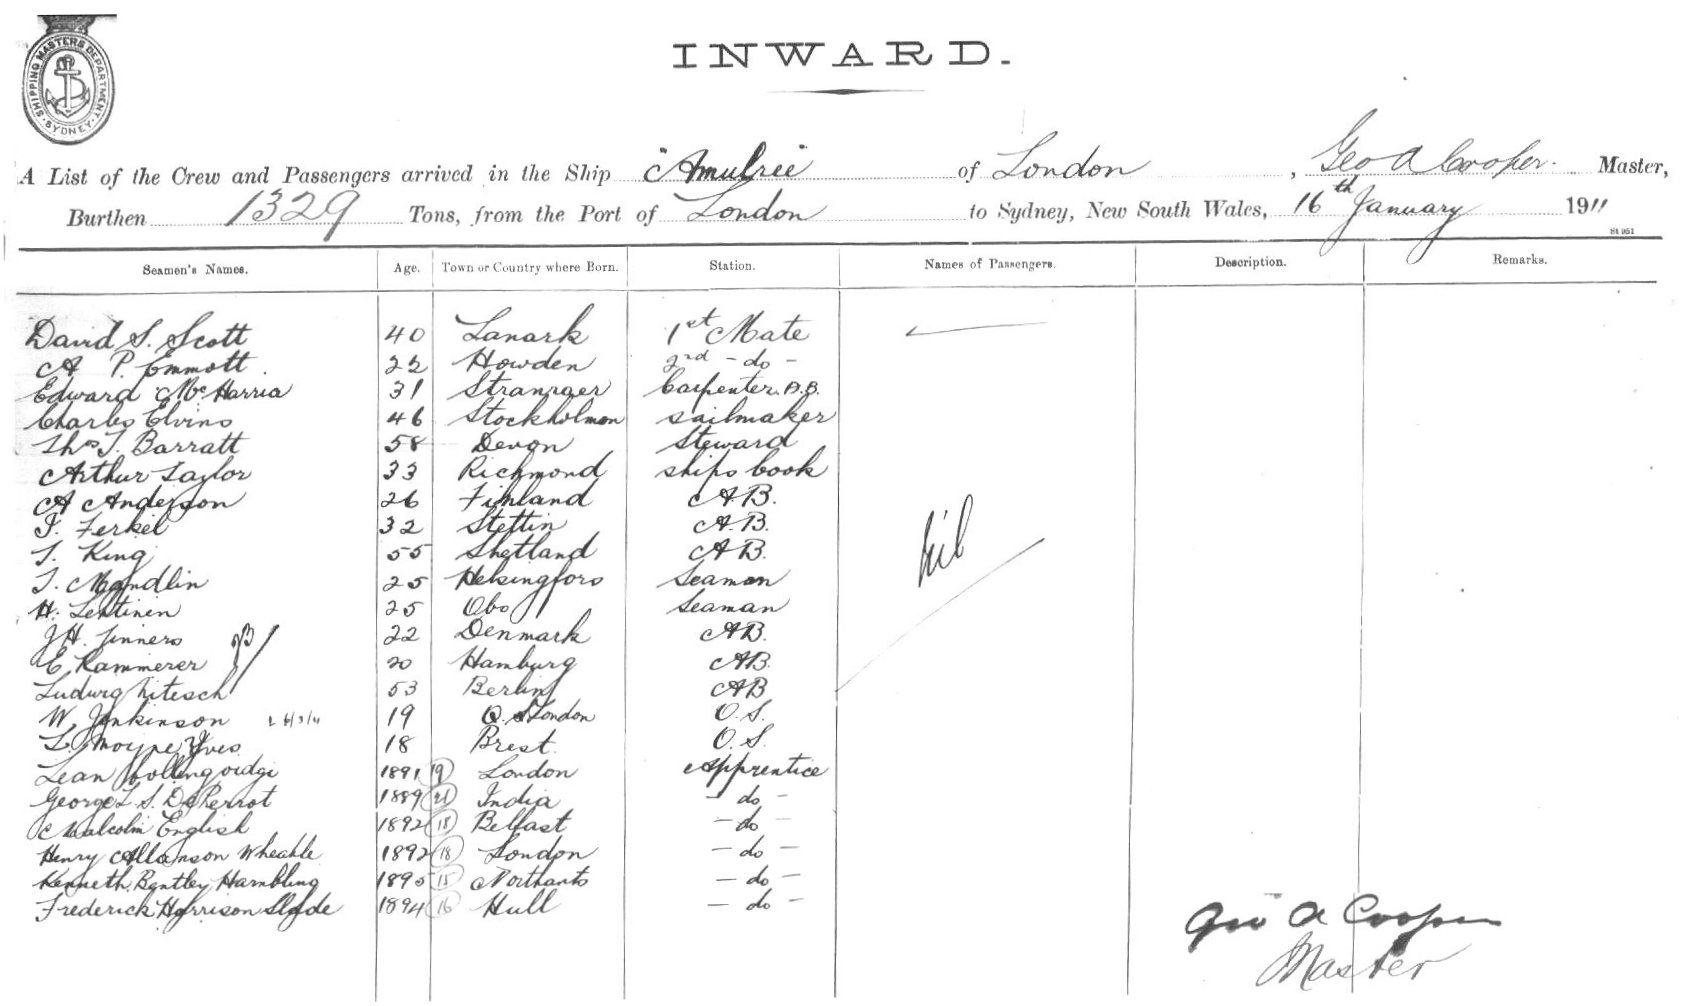 SHIPPING MASTERS DEPARTMENT. SYDNEY.
INWARD.
A List of the Crew and Passengers arrived in the Ship "Amulree" of London, Geo A Cooper. Master,
Burthen 1329 Tons, from the Port of London to Sydney, New South Wales, 16th January 1911
St 951
Seamen's Names. Age. Town or Country where Born. Station. Names of Passengers. Description. Remarks.
David S. Scott 40 Lanark 1st Mate
A P. Emmott 22 Howden 2nd - do -
Edward McHarria 31 Stranraer Carpenter. B.B.
Charles Elvins 46 Stockholmon sailmaker
Thos T. Barratt 58 Devon Steward
Arthur Taylor 33 Richmond ships Cook
A Anderson 26 Finland A.B.
F. Ferkel 32 Stettin A.B.
T. King 55 Shetland AB.
nil
T. Mandlin 25 Helsingfors Seaman
H. Lehtinen 25 Obo Seaman
J H. Jinners 22 Denmark AB.
E. Kammerer 20 Hamburg AB.
Ludwig Nitesch 53 Berlin AB
W. Jenkinson 19 London O.S.
L. Moyne Yves 18 Brest. O.S.
1891 19 London Apprentice
George L. S. De Perrot 1889 21 India - do -
Malcolm English 1892 18 Belfast - do -
Henry Allanson Wheable 1892 18 London - do -
Kenneth Bentley Hambling 1895 15 Northants - do -
Frederick Harrison Slade 1894 16 Hull - do -
Geo A Cooper
Master